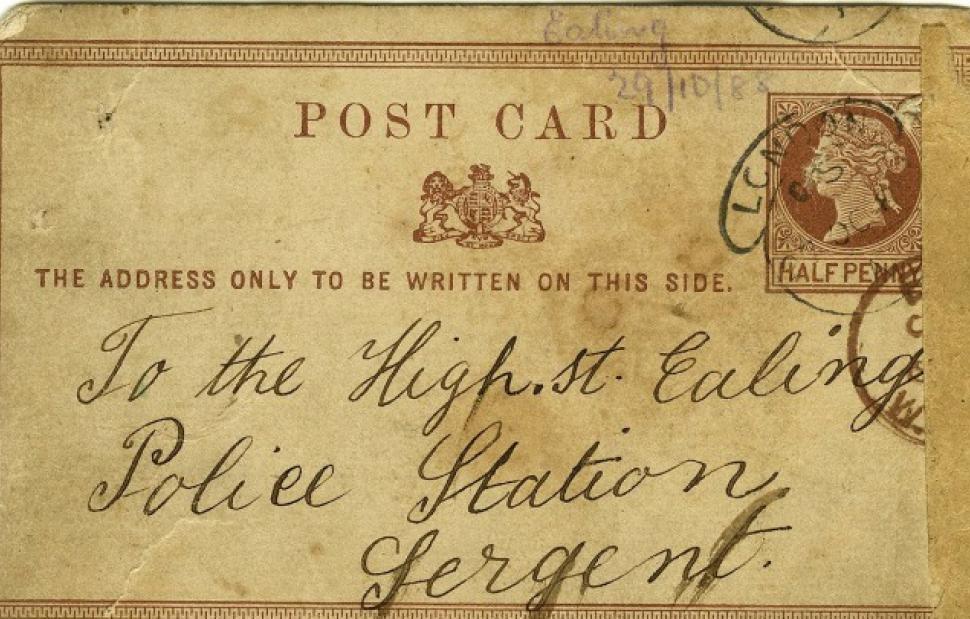 Ealing
29/10/88
POST CARD
LONDON
HALFPENNY
THE ADDRESS ONLY TO BE WRITTEN ON THIS SIDE.
To the High.st. Ealing
Police Station
Sergent.